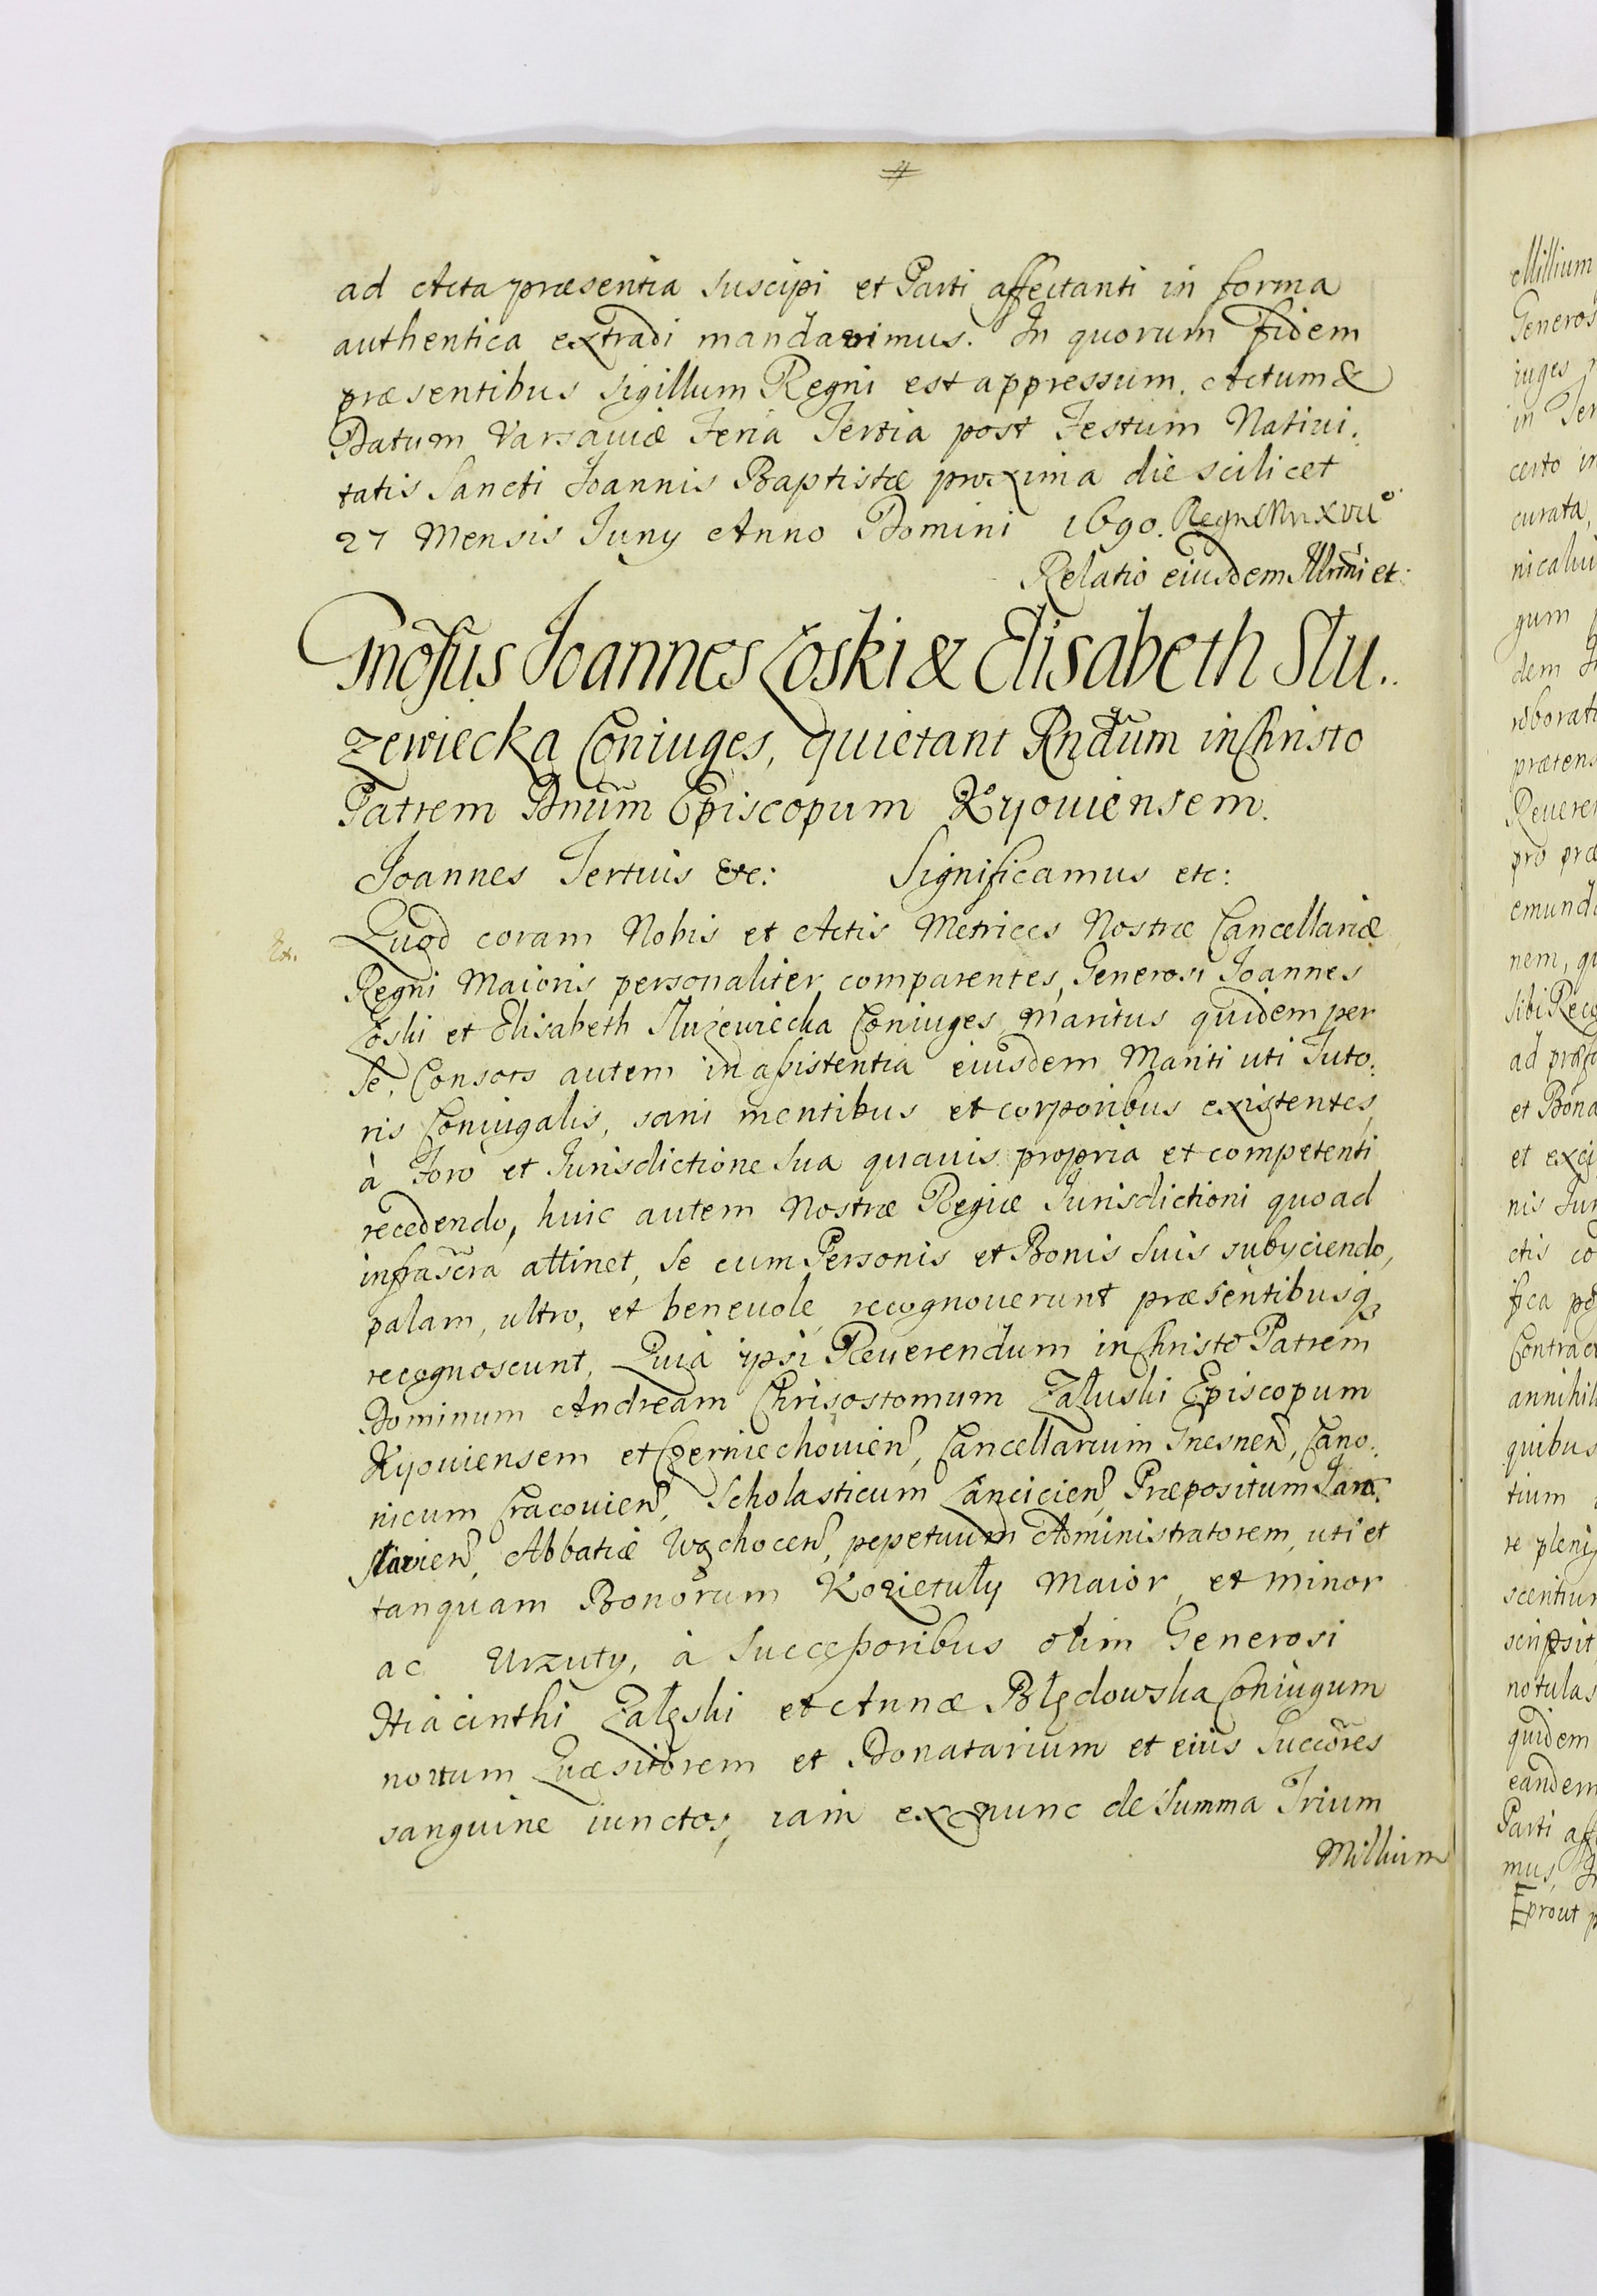 ad Acta præsentia suscipi et Parti affectanti in forma
authentica extradi mandavimus. In quorum fidem
præsentibus Sigillum Regni est appressum. Actum &
Datum Varsauiæ Feria Tertia post Festum Natiui:
tatis Sancti Joannis Baptistæ proxima die scilicet
27 Mensis Juny Anno Domini 1690. Regni Nri XVII°
Relatio eiusdem Illrmi et:
Gnosus Joannes Łoski & Elisabeth Słu..
zewiecka Coniuges, quietant Rndum in Christo
Patrem Dnum Episcopum Kyouiensem.
Joannes Tertius etc: Significamus etc:
Quod coram Nobis et Actis Metrices Nostræ Cancellariæ
Regni Maioris personaliter comparentes, Generosi Joannes
Łoski et Elisabeth Służewiecka Coniuges, Maritus quidem per
se, Consors autem in assistentia eiusdem Mariti uti Tuto:
ris Coniugalis, sani mentibus et corporibus existentes,
à Foro et Jurisdictione sua quauis propria et competenti
recedendo, huic autem Nostræ Regiæ Jurisdictioni quoad
infrascra attinet, se cum Personis et Bonis suis subyciendo,
palam, ultro, et beneuole recognouerunt præsentibusq3
recognoscunt, Quia ipsi Reuerendum in Christo Patrem
Dominum Andream Chrisostomum Załuski Episcopum
Kyouiensem et Czerniechouien, Cancellarium Gnesnen, Cano:
nicum Cracouien, Scholasticum Lancicien, Præpositum Jaro:
slavien, Abbatiæ Wąchocen, pepetuum Administratorem, uti et
tanquam Bonorum Kozietuły Maior et minor
ac Urzuty, à Successoribus olim Generosi
Hiacinthi Załęski et Annæ Błędowska Coniugum
nouum Quæsitorem et Donatarium et eius succores
sanguine iunctos, iam ex nunc de summa Trium
Millium